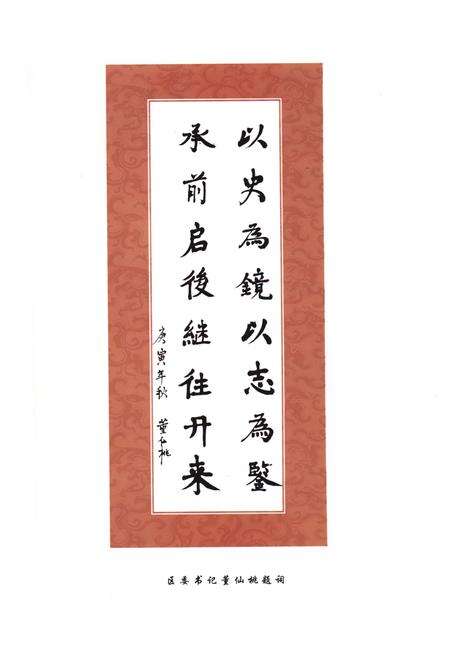 以史為鏡以志為鑒
承前启後继往开来
庚寅年秋 董仙桃
区委书记董仙桃题词